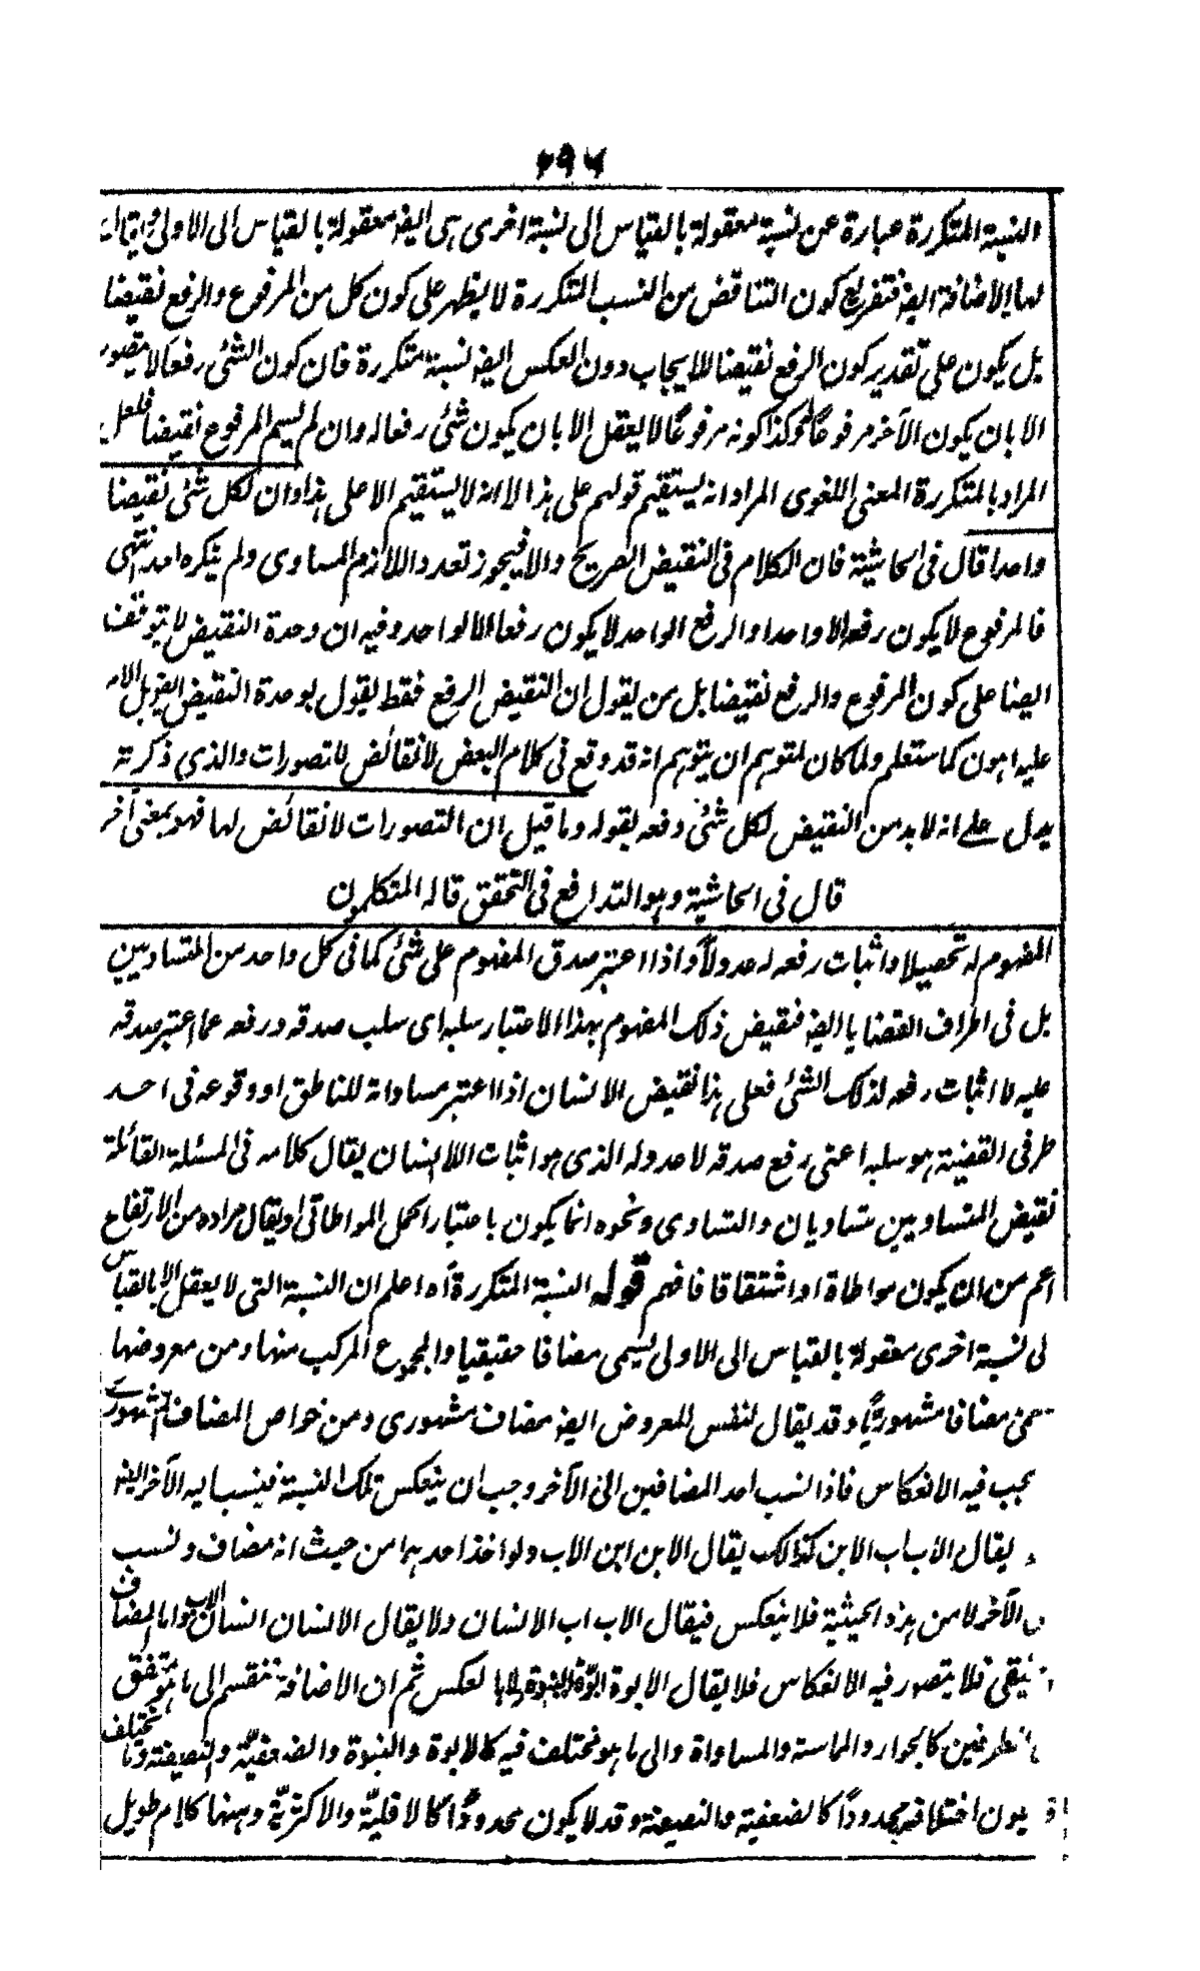 ٢٩٦
النسبة المتكررة عبارة عن نسبة معقولة بالقياس الى نسبة اخرى هى ايضا معقولة بالقياس الى الاولى ويقال
لها الاضافة ايضا فتفريع كون التناقض من النسب المتكررة لا يظهر على كون كل من المرفوع والرفع نقيضا
بل يكون على تقدير كون الرفع نقيضا للايجاب دون العكس ايضا نسبة متكررة فان كون الشئ رفعا لا يتصور
الا بان يكون الآخر مرفوعا وكذا كونه مرفوعًا لا يعقل الا بان يكون شئ رفعا له وان لم يسم المرفوع نقيضا فلعل
المراد بالمتكررة المعنى اللغوى المراد انه يستقيم قولهم على هذا لا انه لا يستقيم الا على هذا وان لكل شئ نقيضا
واحدا قال فى الحاشية فان الكلام فى النقيض الصريح والا فيجوز تعدد اللازم المساوى ولم ينكره احد انتهى
فالمرفوع لا يكون رفعه الا واحدا والرفع الواحد لا يكون رفعا الا لواحد وفيه ان وحدة النقيض لا يتوقف
ايضا على كون المرفوع والرفع نقيضا بل من يقول ان النقيض الرفع فقط يقول بوحدة النقيض ايضا بل الامر
عليه اهون كما ستعلم ولما كان لمتوهم ان يتوهم انه قد وقع فى كلام البعض لا نقائض للتصورات والذي ذكرته
يدل على انه لا بد من النقيض لكل شئ دفعه بقوله وما قيل ان التصورات لا نقائض لها فهو بمعنى آخر
قال فى الحاشية وهو التدافع فى التحقق قاله المتكلمون
المفهوم له تحصيلا واثبات رفعه له عدولاً واذا اعتبر صدق المفهوم على شئ كما فى كل واحد من المتساويين
بل فى اطراف القضايا ايضا فنقيض ذلك المفهوم بهذا الاعتبار سلبه اى سلب صدقه ورفعه عما اعتبر صدقه
عليه لا اثبات رفعه لذلك الشئ فعلى هذا نقيض الانسان اذا اعتبر مساواته للناطق او وقوعه فى احد
طرفى القضية هو سلبه اعنى رفع صدقه لا عدوله الذى هو اثبات اللاانسان يقال كلامه فى المسئلة القائلة
نقيض المتساويين متساويان والتساوى ونحوه انما يكون باعتبار الحمل المواطاتى او يقال مراده من الارتفاع
اعم من ان يكون مواطاة او اشتقاقا فافهم قوله النسبة المتكررة آه اعلم ان النسبة التى لا يعقل الا بالقياس
لى نسبة اخرى معقولة بالقياس الى الاولى يسمى مضافا حقيقيا والمجموع المركب منها ومن معروضها
يسمى مضافا مشهوريًا وقد يقال لنفس المعروض ايضا مضاف مشهورى ومن خواص المضاف المشهورے
يجب فيه الانعكاس فاذا نسب احد المضافين الى الآخر وجب ان ينعكس تلك النسبة فينسب اليه الآخر ايضا
يقال الاب اب الابن كذلك يقال الابن ابن الاب ولو اخذ احدهما من حيث انه مضاف ونسب
الآخر لا من هذه الحيثية فلا ينعكس فيقال الاب اب الانسان ولا يقال الانسان انسان الاب واما المضاف
الحقيقى فلا يتصور فيه الانعكاس فلا يقال الابوة ابوّة البنوة ولا بالعكس ثم ان الاضافة تنقسم الى ما هو متفق
الطرفين كالجوار والمماسة والمساواة والى ما هو مختلف فيه كالابوة والبنوة والضعفيّة والنصيفة وما يختلف
يكون اختلافه محدودًا كالضعفية والنصيفة وقد لا يكون محدودًا كالاقليّة والاكثريّة وههنا كلام طويل